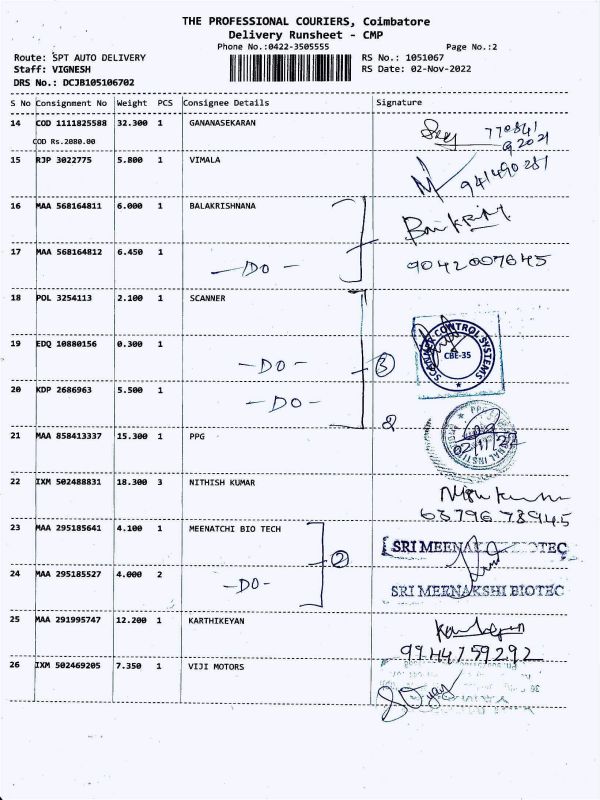 THE PROFESSIONAL COURIERS, Coimbatore
Delivery Runsheet - CMP
Phone No.:0422-3505555 Page No.:2
Route: SPT AUTO DELIVERY RS No.: 1051067
Staff: VIGNESH RS Date: 02-Nov-2022
DRS No.: DCJB105106702
S No Consignment No Weight PCS Consignee Details Signature
14 COD 1111825588 32.300 1 GANANASEKARAN
COD Rs.2080.00
15 RJP 3022775 5.800 1 VIMALA
16 MAA 568164811 6.000 1 BALAKRISHNANA
17 MAA 568164812 6.450 1 -DO- 9042007645
18 POL 3254113 2.100 1 SCANNER
SCANNER CONTROL SYSTEMS
CBE-35
19 EDQ 10880156 0.300 1 -DO- 3
20 KDP 2686963 5.500 1 -DO-
2
21 MAA 858413337 15.300 1 PPG
PPG
02/11/22
22 IXM 502488831 18.300 3 NITHISH KUMAR
63796 78945
23 MAA 295185641 4.100 1 MEENATCHI BIO TECH 2
SRI MEENA TEC
24 MAA 295185527 4.000 2 -DO- SRI MEENAKSHI BIOTEC
25 MAA 291995747 12.200 1 KARTHIKEYAN
9944759292
26 IXM 502469205 7.350 1 VIJI MOTORS